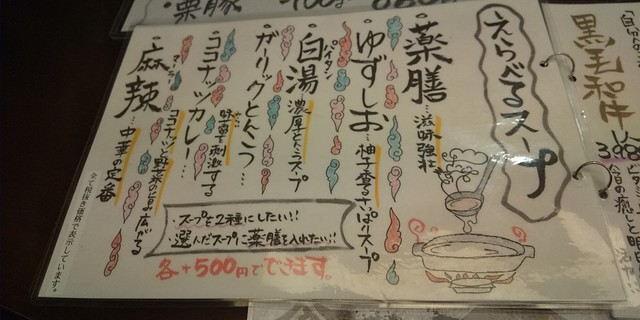 えらべるスープ
薬膳…滋味強壮
ゆずしお…柚子香るさっぱりスープ
パイタン
白湯…濃厚とんこつスープ
ガーリックとんこつ…
味覚を刺激する
ココナッツカレー…
ココナッツと野菜の旨み広がる
マーラー
麻辣…中華の定番
・スープを2種にしたい!!
・選んだスープに薬膳を入れたい!!
各+500円でできます。
全て税抜き価格で表示しています。
栗豚
黒毛和牛